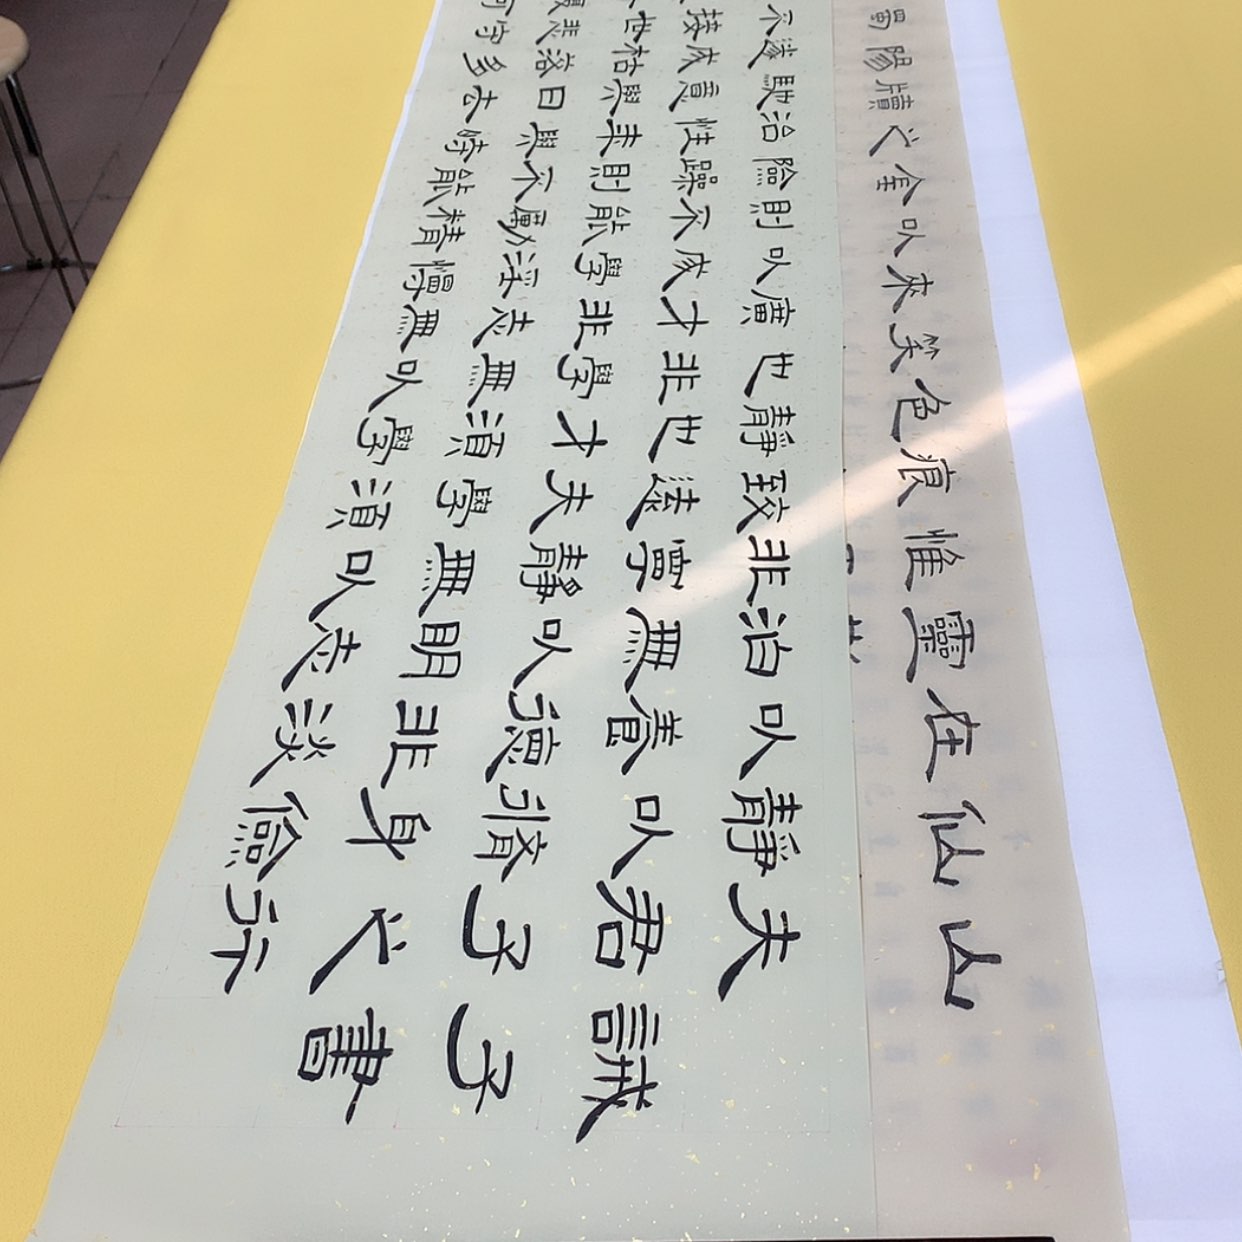 山
仙
在
靈
惟
痕
色
笑
來
以
金
之
牘
陽
誡子書
夫君子之行
靜以修身儉
以養德非淡
泊無以明志
非寧靜無以
致遠夫學須
靜也才須學
也非學無以
廣才非志無
以成學淫慢
則不能勵精
險躁則不能
治性年與時
馳意與日去
遂成枯落多
不接世悲守